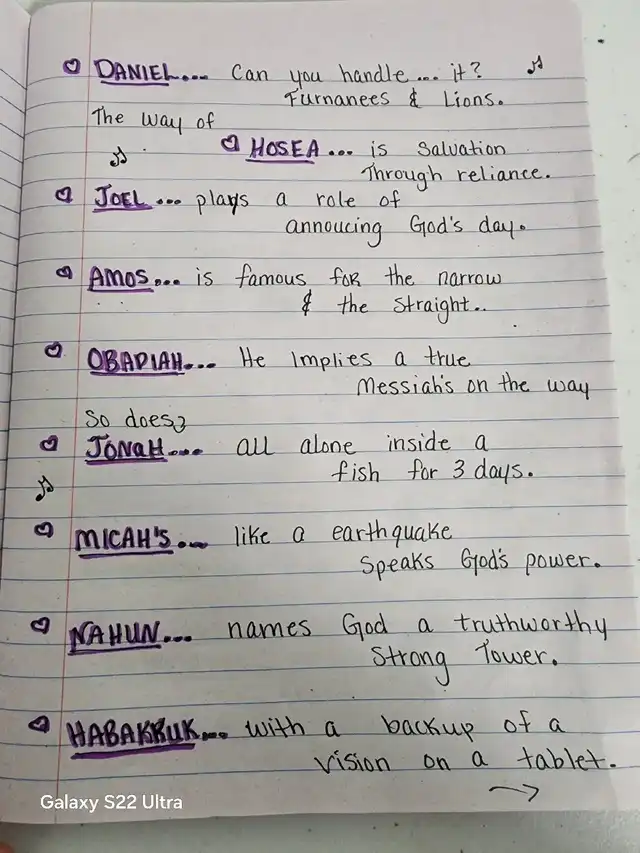 DANIEL... Can you handle... it?
Furnanees & Lions.
The way of
HOSEA... is Salvation
Through reliance.
JOEL... plays a role of
annoucing God's day.
AMOS... is famous for the narrow
& the Straight..
OBADIAH... He Implies a true
Messiah's on the way
So does
JONAH.... all alone inside a
fish for 3 days.
MICAH'S... like a earthquake
Speaks God's power.
NAHUN... names God a truthworthy
Strong Tower.
HABAKRUK... with a backup of a
vision on a tablet.
Galaxy S22 Ultra